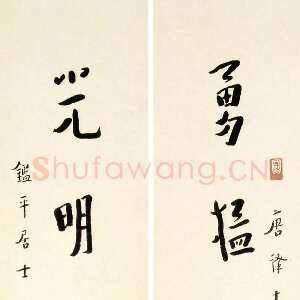 勇猛
唐譯
光明
鑑平居士
Shufawang.CN